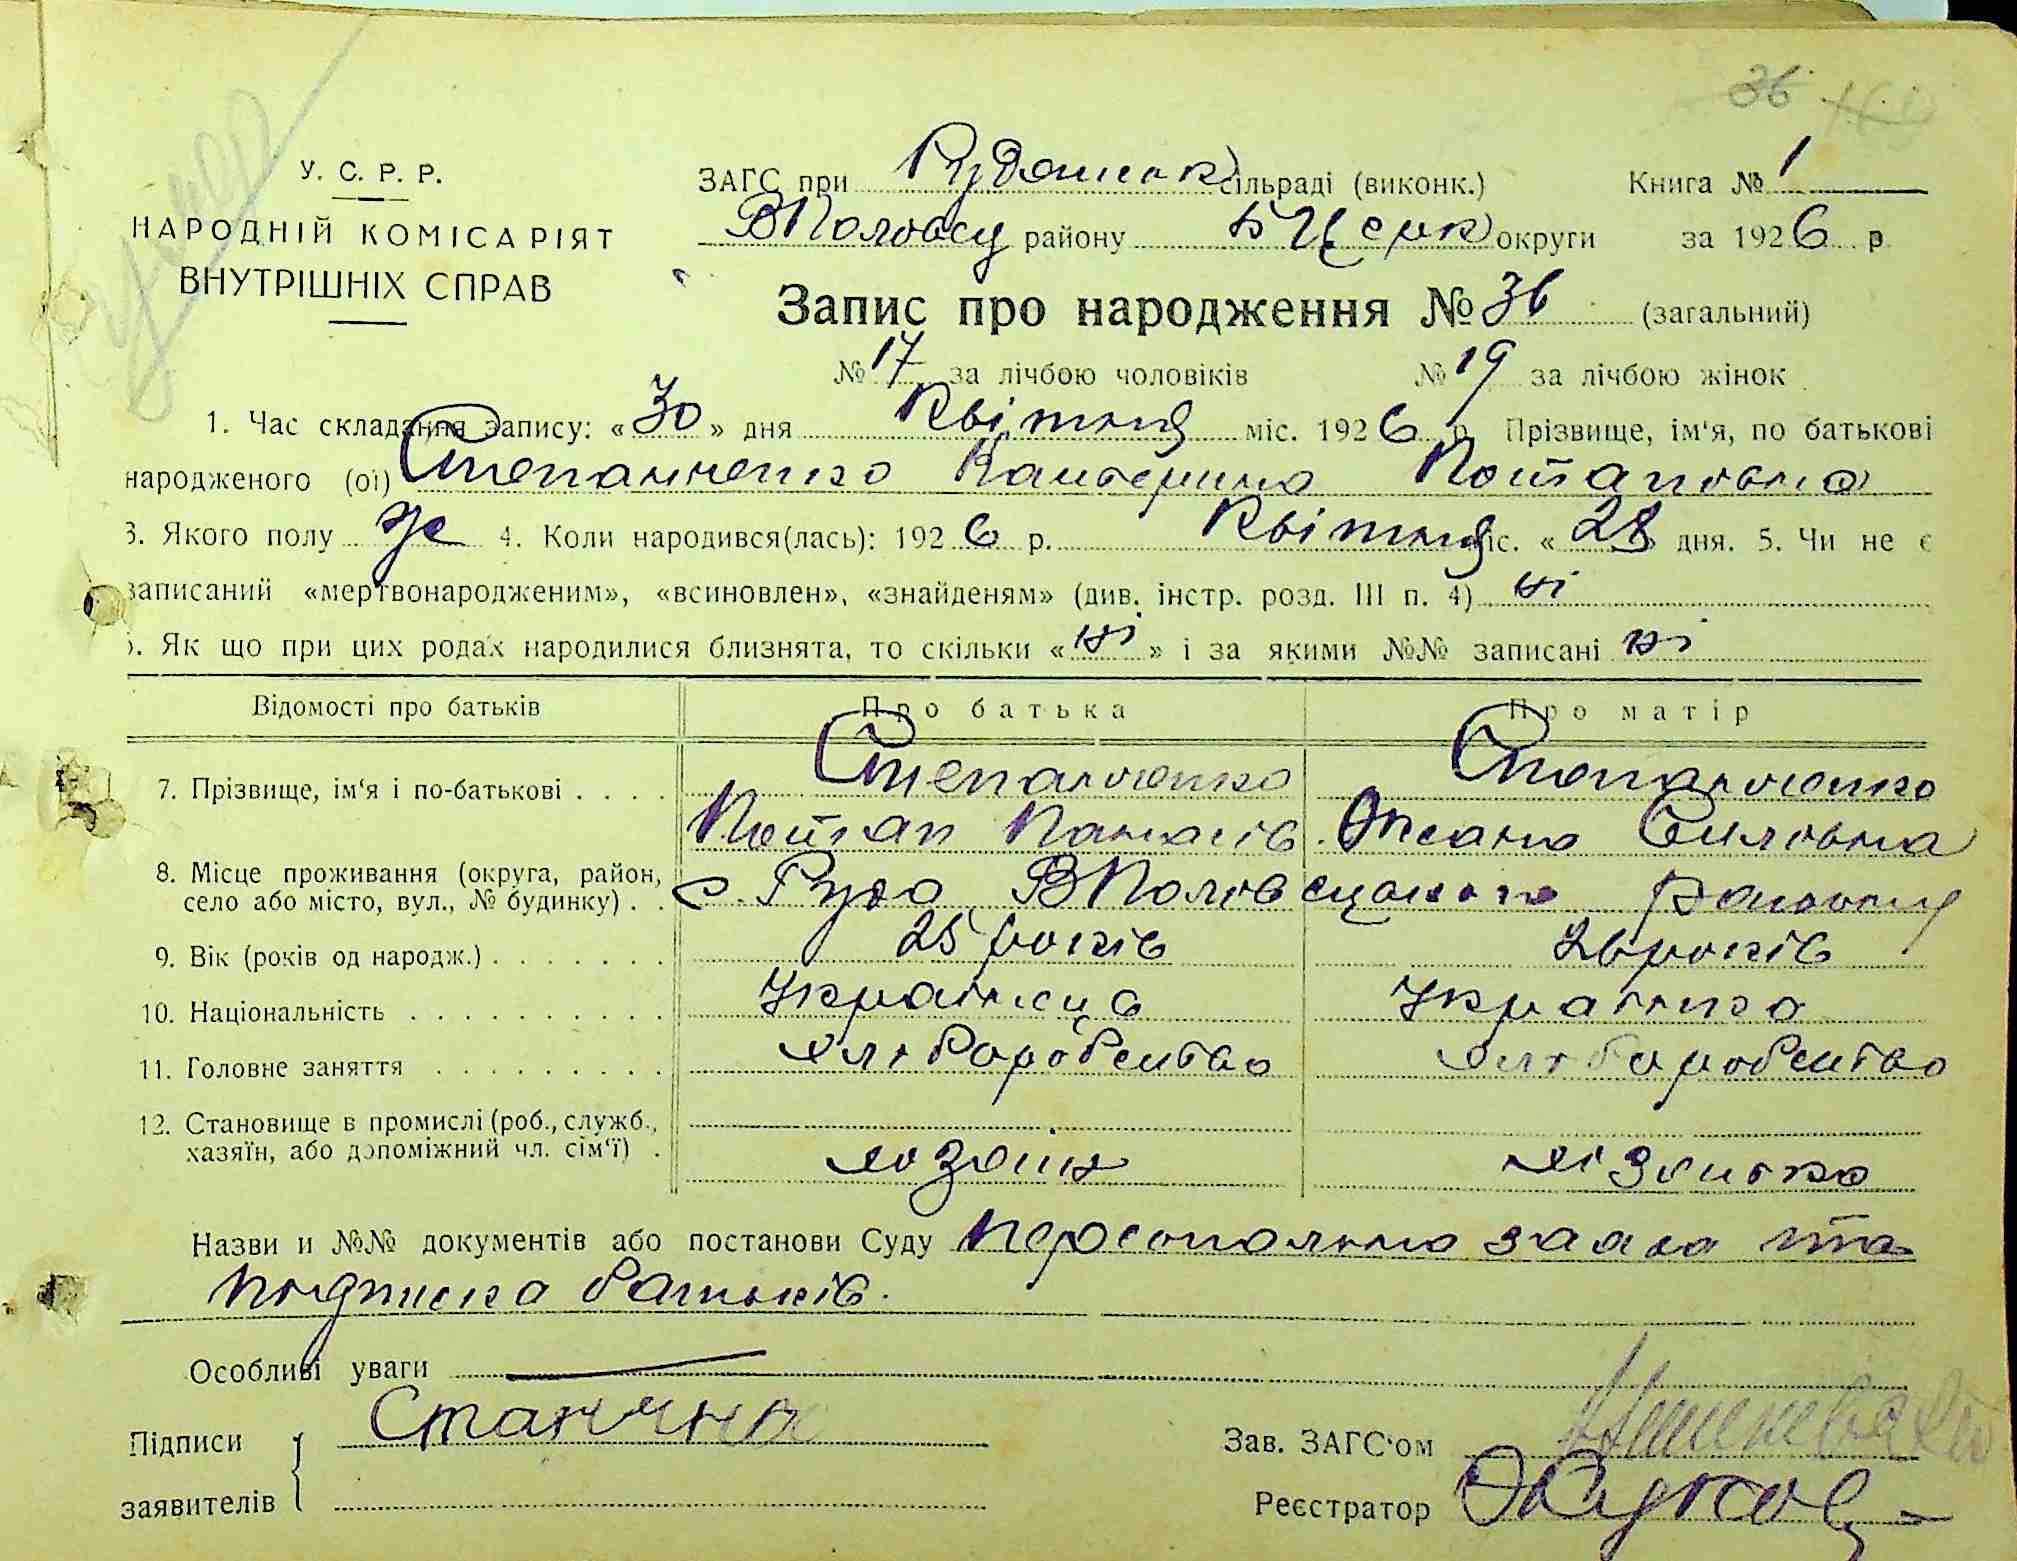 36
У. С. Р. Р.
НАРОДНІЙ КОМІСАРІЯТ
ВНУТРІШНІХ СПРАВ
ЗАГС при Рудянськ сільраді (виконк.) Книга № 1
ВПоловец району БЦерк округи за 1926 р
Запис про народження № 36 (загальний)
№ 17 за лічбою чоловіків № 19 за лічбою жінок
1. Час складання запису: «30» дня Квітня міс. 1926 р. Прізвище, ім‘я, по батькові
народженого (ої) Степанченко Катерина Потаповна
3. Якого полу ж 4. Коли народився(лась): 1926 р. Квітня міс. «28» дня. 5. Чи не є
записаний «мертвонародженим», «всиновлен», «знайденям» (див. інстр. розд. III п. 4) ні
6. Як що при цих родах народилися близнята, то скільки «ні» і за якими №№ записані ні
Відомості про батьків Про батька Про матір
7. Прізвище, ім‘я і по-батькові . . . . Степанченко Степанченко
Потап Панасів Оксана Силовна
8. Місце проживання (округа, район,
село або місто, вул., № будинку) . . с. Руда ВПоловецького району
9. Вік (років од народж.) . . . . . . . 25 років 26 років
10. Національність . . . . . . . . . . Українец Українка
11. Головне заняття . . . . . . . . . хліборобство хліборобство
12. Становище в промислі (роб., служб.,
хазяїн, або допоміжний чл. сім‘ї) . хозяін хозяйка
Назви и №№ документів або постанови Суду персональна заява та
подписка батьків.
Особливі уваги
Підписи
заявителів
Зав. ЗАГС‘ом
Реєстратор